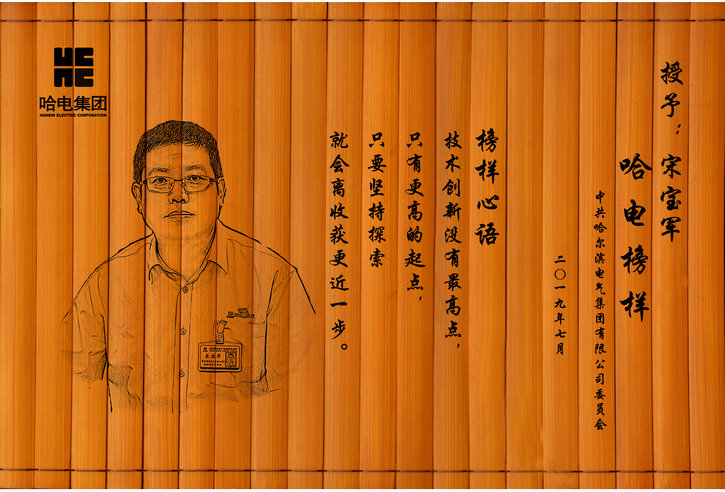 哈电集团
HARBIN ELECTRIC CORPORATION
授予：宋宝军
哈电榜样
中共哈尔滨电气集团有限公司委员会
二〇一九年七月
榜样心语
技术创新没有最高点，
只有更高的起点，
只要坚持探索
就会离收获更近一步。
宋宝军